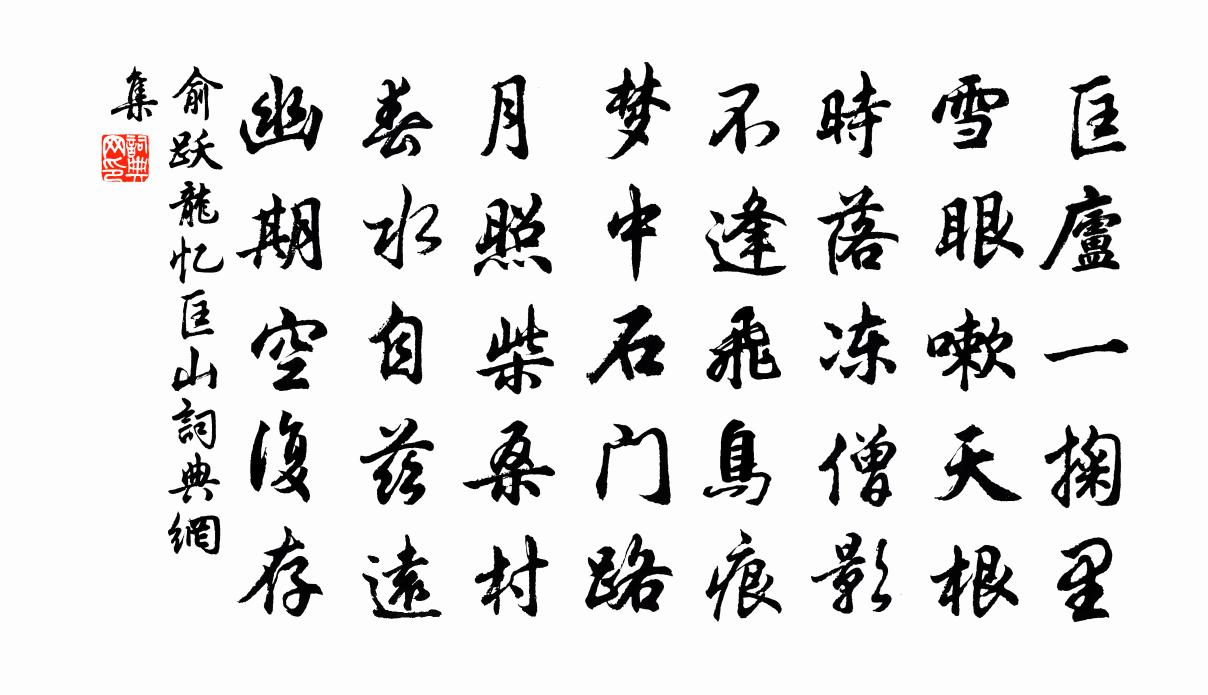 匡廬一掬里
雪眼嗽天根
時落冻僧影
不逢飛鳥痕
梦中石门路
月照柴桑村
春水自兹遠
幽期空復存
俞跃龍忆匡山詞典網
集
詞典网印